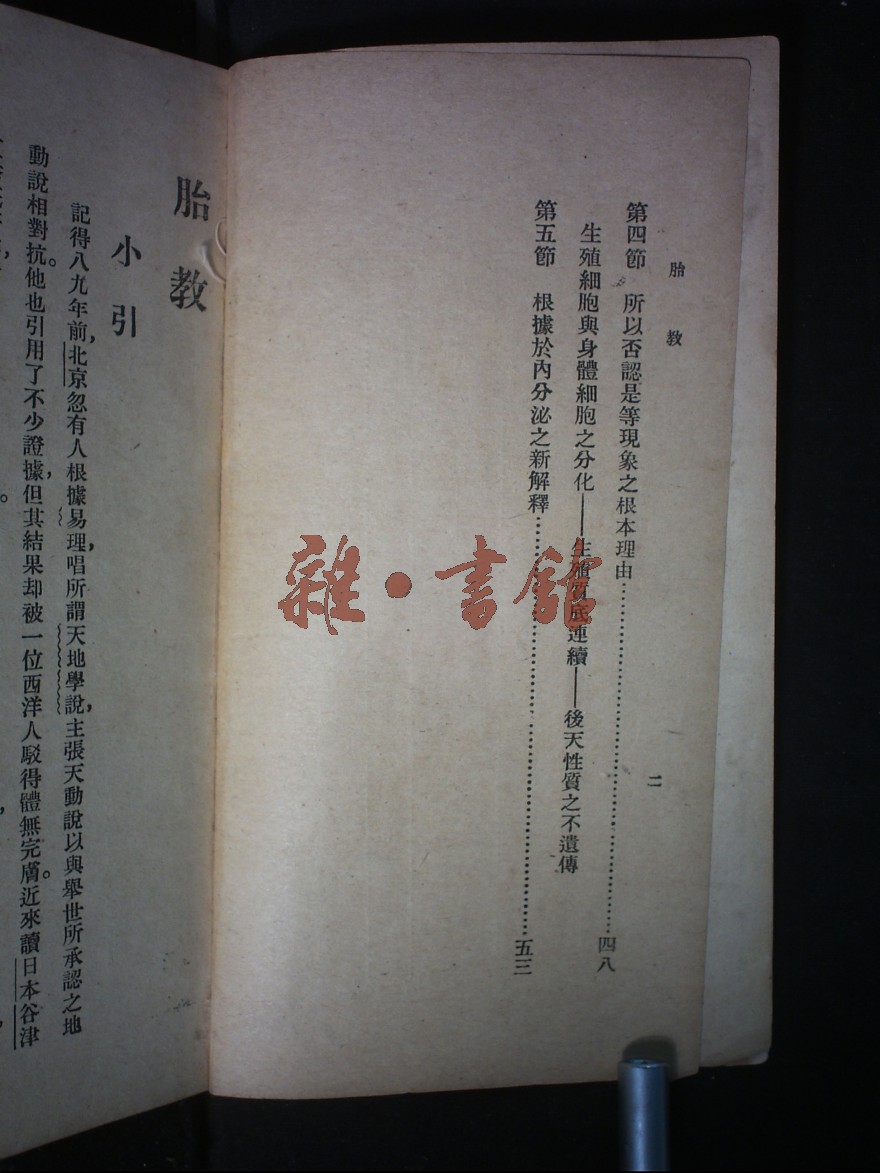 胎教
二
第四節　所以否認是等現象之根本理由……………………四八
生殖細胞與身體細胞之分化——生殖質底連續——後天性質之不遺傳
第五節　根據於內分泌之新解釋……………………五三
雜・書館
胎教
小引
記得八九年前，北京忽有人根據易理，唱所謂天地學說，主張天動說以與舉世所承認之地
動說相對抗。他也引用了不少證據，但其結果却被一位西洋人駁得體無完膚。近來讀日本谷津